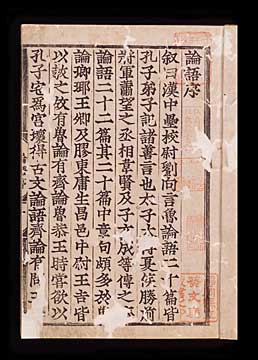 論語序
叙曰漢中壘校尉劉向言魯論語二十篇皆
孔子弟子記諸善言也太子太夏侯勝前
將軍蕭望之丞相韋賢及子玄成等傳之齊
論語二十二篇其二十篇中章句頗多於魯
論瑯琊王卿及膠東庸生昌邑中尉王吉皆
以敎之故有魯論有齊論魯恭王時嘗欲以
孔子宅為宮壞得古文論語齊論有問王